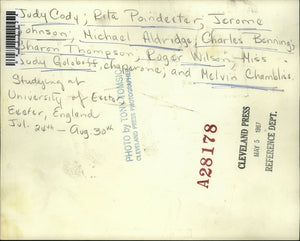 Judy Cody, Rita Poindexter, Jerome
Johnson, Michael Aldridge, Charles Benning,
Sharon Thompson, Roger Wilson, Miss
Judy Goloboff, chaperone, and Melvin Chambliss.
Studying at
University of Exeter
Exeter, England
Jul. 24th - Aug. 30th
PHOTO by TONY TOMSIC
CLEVELAND PRESS PHOTOGRAPHER
A28178
CLEVELAND PRESS
MAY 5 1967
REFERENCE DEPT.